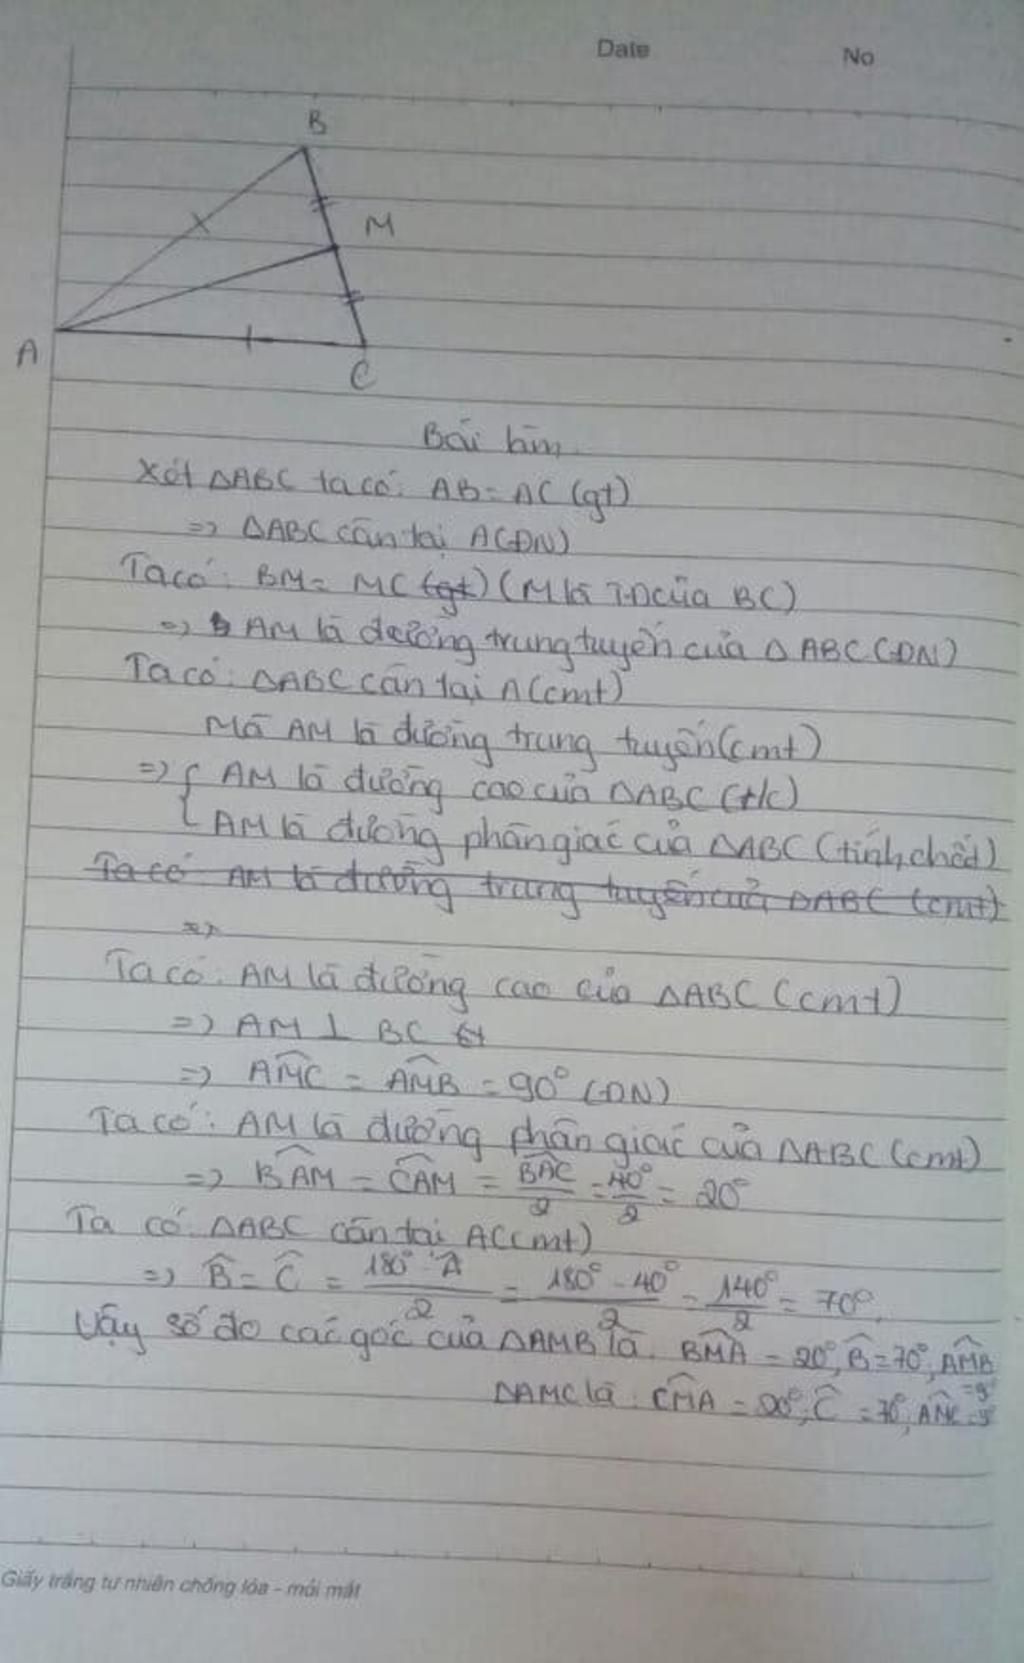 Date No
B
M
A
C
Bài làm
Xét ΔABC ta có: AB = AC (gt)
=> ΔABC cân tại A (ĐN)
Ta có: BM = MC (gt) (M là T.Đ của BC)
=> AM là đường trung tuyến của ΔABC (ĐN)
Ta có: ΔABC cân tại A (cmt)
Mà AM là đường trung tuyến (cmt)
=> { AM là đường cao của ΔABC (t/c)
AM là đường phân giác của ΔABC (tính chất)
Ta có AM là đường trung tuyến của ΔABC (cmt)
=>
Ta có: AM là đường cao của ΔABC (cmt)
=> AM ⊥ BC
=> AMC = AMB = 90° (ĐN)
Ta có: AM là đường phân giác của ΔABC (cmt)
=> BAM = CAM = BAC/2 = 40°/2 = 20°
Ta có: ΔABC cân tại A (cmt)
=> B = C = 180° - A/2 = 180° - 40°/2 = 140°/2 = 70°
Vậy số đo các góc của ΔAMB là: BMA = 20°, B = 70°, AMB
ΔAMC là: CMA = 20°, C = 70°, AMC
Giấy trắng tự nhiên chống lóa - mỏi mắt